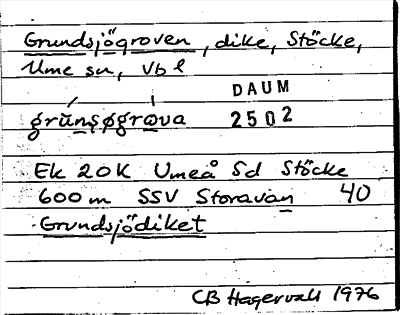 Grundsjögroven, dike, Stöcke,
Ume sn, Vb l
DAUM
grúnsøgrøva 2502
Ek 20K Umeå Sd Stöcke
600 m SSV Storavan 40
Grundsjödiket
CB Hagervall 1976